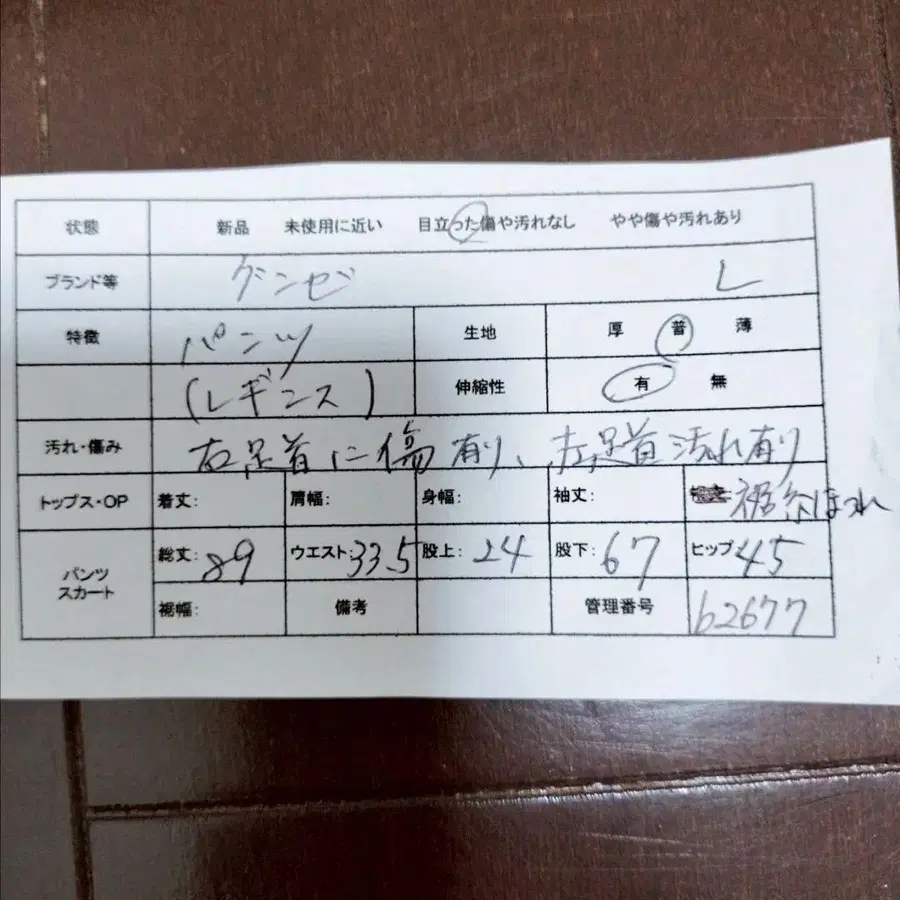 状態 新品 未使用に近い 目立った傷や汚れなし やや傷や汚れあり
ブランド等 グンゼ L
特徴 パンツ 生地 厚 普 薄
(レギンス) 伸縮性 有 無
汚れ・傷み 右足首に傷有り、左足首汚れ有り
トップス・OP 着丈: 肩幅: 身幅: 袖丈: 裾糸ほつれ
パンツ スカート 総丈: 89 ウエスト: 33.5 股上: 24 股下: 67 ヒップ: 45
裾幅: 備考 管理番号 62677